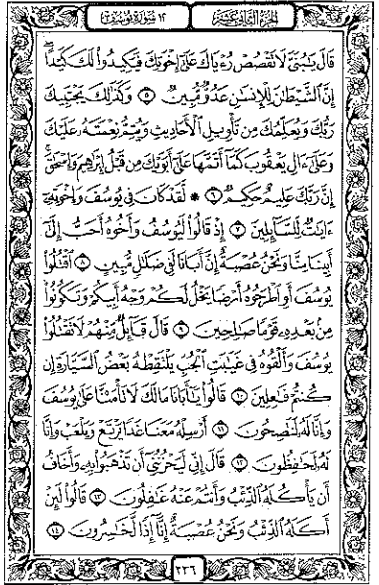 الجزء الثاني عشر
١٢ سورة يوسف
قَالَ يَٰبُنَيَّ لَا تَقْصُصْ رُءْيَاكَ عَلَىٰٓ إِخْوَتِكَ فَيَكِيدُوا۟ لَكَ كَيْدًا ۖ
إِنَّ ٱلشَّيْطَٰنَ لِلْإِنسَٰنِ عَدُوٌّ مُّبِينٌ ٥ وَكَذَٰلِكَ يَجْتَبِيكَ
رَبُّكَ وَيُعَلِّمُكَ مِن تَأْوِيلِ ٱلْأَحَادِيثِ وَيُتِمُّ نِعْمَتَهُۥ عَلَيْكَ
وَعَلَىٰٓ ءَالِ يَعْقُوبَ كَمَآ أَتَمَّهَا عَلَىٰٓ أَبَوَيْكَ مِن قَبْلُ إِبْرَٰهِيمَ وَإِسْحَٰقَ ۚ
إِنَّ رَبَّكَ عَلِيمٌ حَكِيمٌ ٦ * لَّقَدْ كَانَ فِى يُوسُفَ وَإِخْوَتِهِۦٓ
ءَايَٰتٌ لِّلسَّآئِلِينَ ٧ إِذْ قَالُوا۟ لَيُوسُفُ وَأَخُوهُ أَحَبُّ إِلَىٰٓ
أَبِينَا مِنَّا وَنَحْنُ عُصْبَةٌ إِنَّ أَبَانَا لَفِى ضَلَٰلٍ مُّبِينٍ ٨ ٱقْتُلُوا۟
يُوسُفَ أَوِ ٱطْرَحُوهُ أَرْضًا يَخْلُ لَكُمْ وَجْهُ أَبِيكُمْ وَتَكُونُوا۟
مِنۢ بَعْدِهِۦ قَوْمًا صَٰلِحِينَ ٩ قَالَ قَآئِلٌ مِّنْهُمْ لَا تَقْتُلُوا۟
يُوسُفَ وَأَلْقُوهُ فِى غَيَٰبَتِ ٱلْجُبِّ يَلْتَقِطْهُ بَعْضُ ٱلسَّيَّارَةِ إِن
كُنتُمْ فَٰعِلِينَ ١٠ قَالُوا۟ يَٰٓأَبَانَا مَا لَكَ لَا تَأْمَ۫نَّا عَلَىٰ يُوسُفَ
وَإِنَّا لَهُۥ لَنَٰصِحُونَ ١١ أَرْسِلْهُ مَعَنَا غَدًا يَرْتَعْ وَيَلْعَبْ وَإِنَّا
لَهُۥ لَحَٰفِظُونَ ١٢ قَالَ إِنِّى لَيَحْزُنُنِىٓ أَن تَذْهَبُوا۟ بِهِۦ وَأَخَافُ
أَن يَأْكُلَهُ ٱلذِّئْبُ وَأَنتُمْ عَنْهُ غَٰفِلُونَ ١٣ قَالُوا۟ لَئِنْ
أَكَلَهُ ٱلذِّئْبُ وَنَحْنُ عُصْبَةٌ إِنَّآ إِذًا لَّخَٰسِرُونَ ١٤
٢٣٦